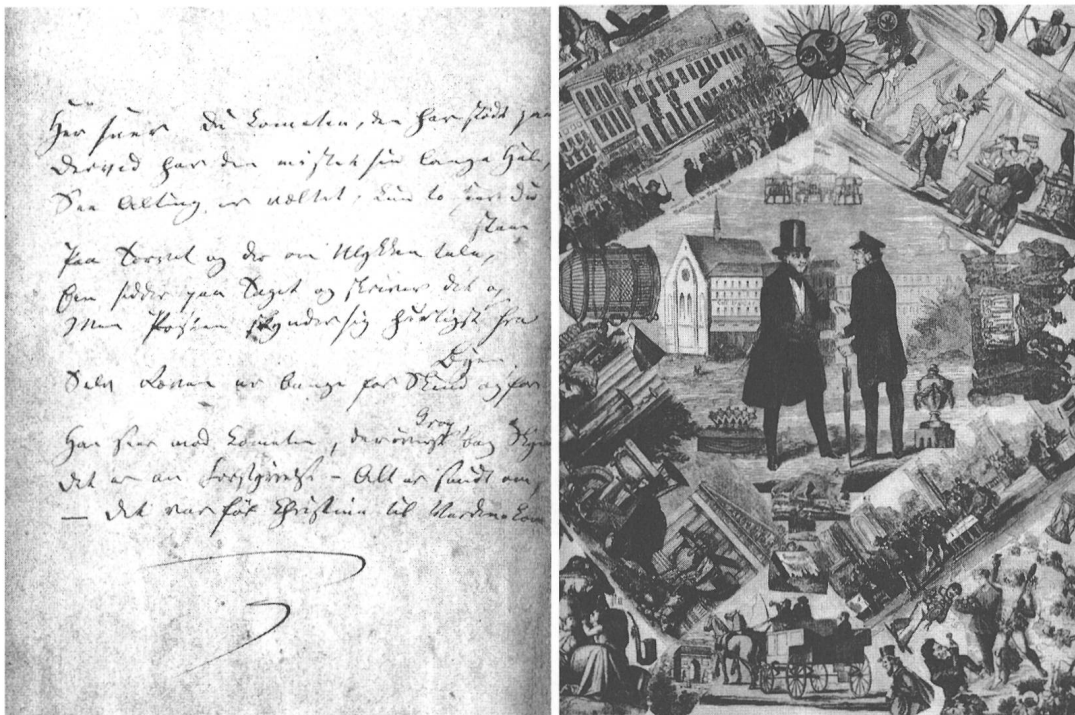 Her seer du Cometen, den har stødt paa
Derved har den mistet sin lange Hale,
See Alting er væltet, kun to seer du
staae
Paa Torvet og der om Ulykken tale,
Een sidder paa Taget og skriver det op
Men Posten skynder sig hurtigst fra
Byen
Selv Løven er bange for Skind og for
Krop
Han seer mod Cometen, der øverst bag Skyen
det er en Forstyrrelse – Alt er smidt om,
— det var før Christine til Verden kom